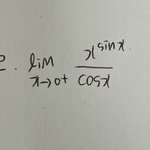 2. lim x→0+ x^sinx / cosx